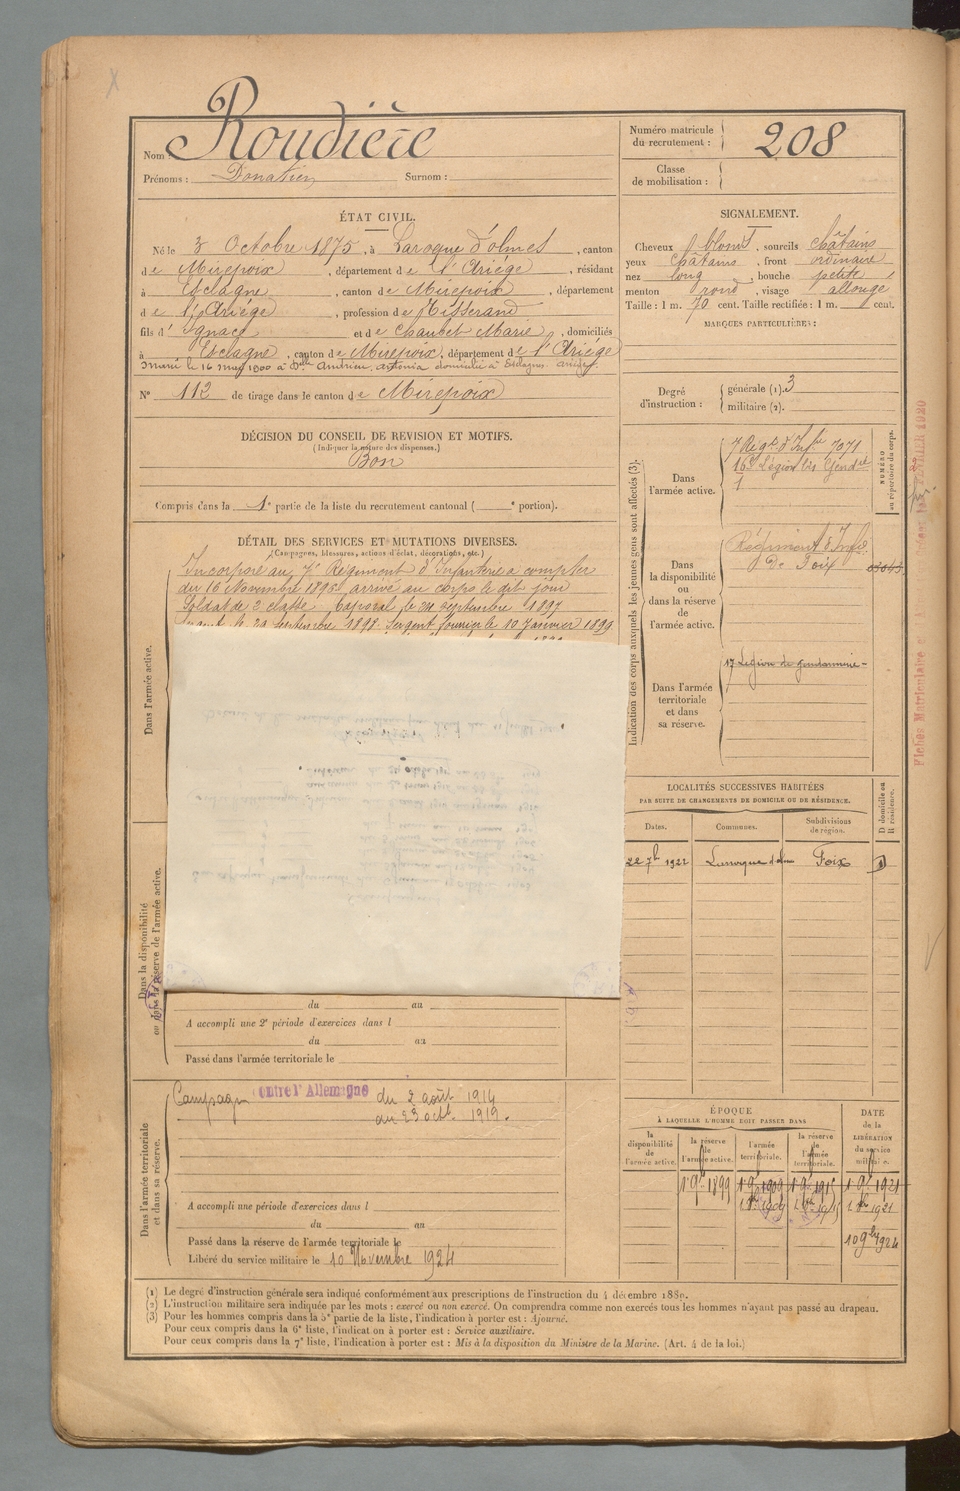 Nom Roudière
Prénoms : Donatien Surnom :
Numéro matricule du recrutement : 208
Classe de mobilisation :
ÉTAT CIVIL.
Né le 3 Octobre 1875, à Laroque d'olmes, canton
de Mirepoix, département de l'Ariége, résidant
à Esclagne, canton de Mirepoix, département
de l'Ariége, profession de Tisserand
fils d'Ignace et de Chaubet Marie, domiciliés
à Esclagne, canton de Mirepoix, département de l'Ariége
marié le 16 mai 1900 à Dlle Andrieu Antonia domicilié à Esclagne Ariége
N° 112 de tirage dans le canton de Mirepoix
SIGNALEMENT.
Cheveux blonds, sourcils châtains
yeux châtains, front ordinaire
nez long, bouche petite,
menton rond, visage allongé
Taille : 1 m. 70 cent. Taille rectifiée : 1 m. cent.
MARQUES PARTICULIÈRES :
Degré d'instruction : générale (1). 3
militaire (2).
DÉCISION DU CONSEIL DE REVISION ET MOTIFS.
(Indiquer la nature des dispenses.)
Bon
Compris dans la 1e partie de la liste du recrutement cantonal ( e portion).
DÉTAIL DES SERVICES ET MUTATIONS DIVERSES.
(Campagnes, blessures, actions d'éclat, décorations, etc.)
Dans l'armée active.
Incorporé au 7e Régiment d'Infanterie à compter
du 16 Novembre 1896 arrivé au corps le dit jour
Soldat de 2e classe Caporal le 24 septembre 1897
Sergent le 21 septembre 1898. Sergent fourrier le 10 Janvier 1899
Indication des corps auxquels les jeunes gens sont affectés (3).
Dans l'armée active.
7 Régt d'Infie 7071
16e Légion bis Gendrie
1
NUMÉRO au répertoire du corps.
Dans la disponibilité ou dans la réserve de l'armée active.
Régiment d'Infie
De Foix
Dans l'armée territoriale et dans sa réserve.
17 Légion de gendarmerie
LOCALITÉS SUCCESSIVES HABITÉES
PAR SUITE DE CHANGEMENTS DE DOMICILE OU DE RÉSIDENCE.
Dates. Communes. Subdivisions de région. D domicile ou R résidence.
22 7bre 1921 Laroque d'olmes Foix D
Dans la disponibilité ou dans la réserve de l'armée active.
du au
A accompli une 2e période d'exercices dans l
du au
Passé dans l'armée territoriale le
Dans l'armée territoriale et dans sa réserve.
Campagne contre l'Allemagne du 2 août 1914
au 23 octe 1919.
A accompli une période d'exercices dans l
du au
Passé dans la réserve de l'armée territoriale le
Libéré du service militaire le 10 Novembre 1924
ÉPOQUE
À LAQUELLE L'HOMME DOIT PASSER DANS
la disponibilité de l'armée active.
la réserve de l'armée active.
l'armée territoriale.
la réserve de l'armée territoriale.
DATE de la LIBÉRATION du service militaire.
1 9bre 1899 1 9bre 1909 1 9bre 1915 1 9bre 1921
10 9bre 1924
(1) Le degré d'instruction générale sera indiqué conformément aux prescriptions de l'instruction du 4 décembre 1889.
(2) L'instruction militaire sera indiquée par les mots : exercé ou non exercé. On comprendra comme non exercés tous les hommes n'ayant pas passé au drapeau.
(3) Pour les hommes compris dans la 5e partie de la liste, l'indication à porter est : Ajourné.
Pour ceux compris dans la 6e liste, l'indication à porter est : Service auxiliaire.
Pour ceux compris dans la 7e liste, l'indication à porter est : Mis à la disposition du Ministre de la Marine. (Art. 4 de la loi.)